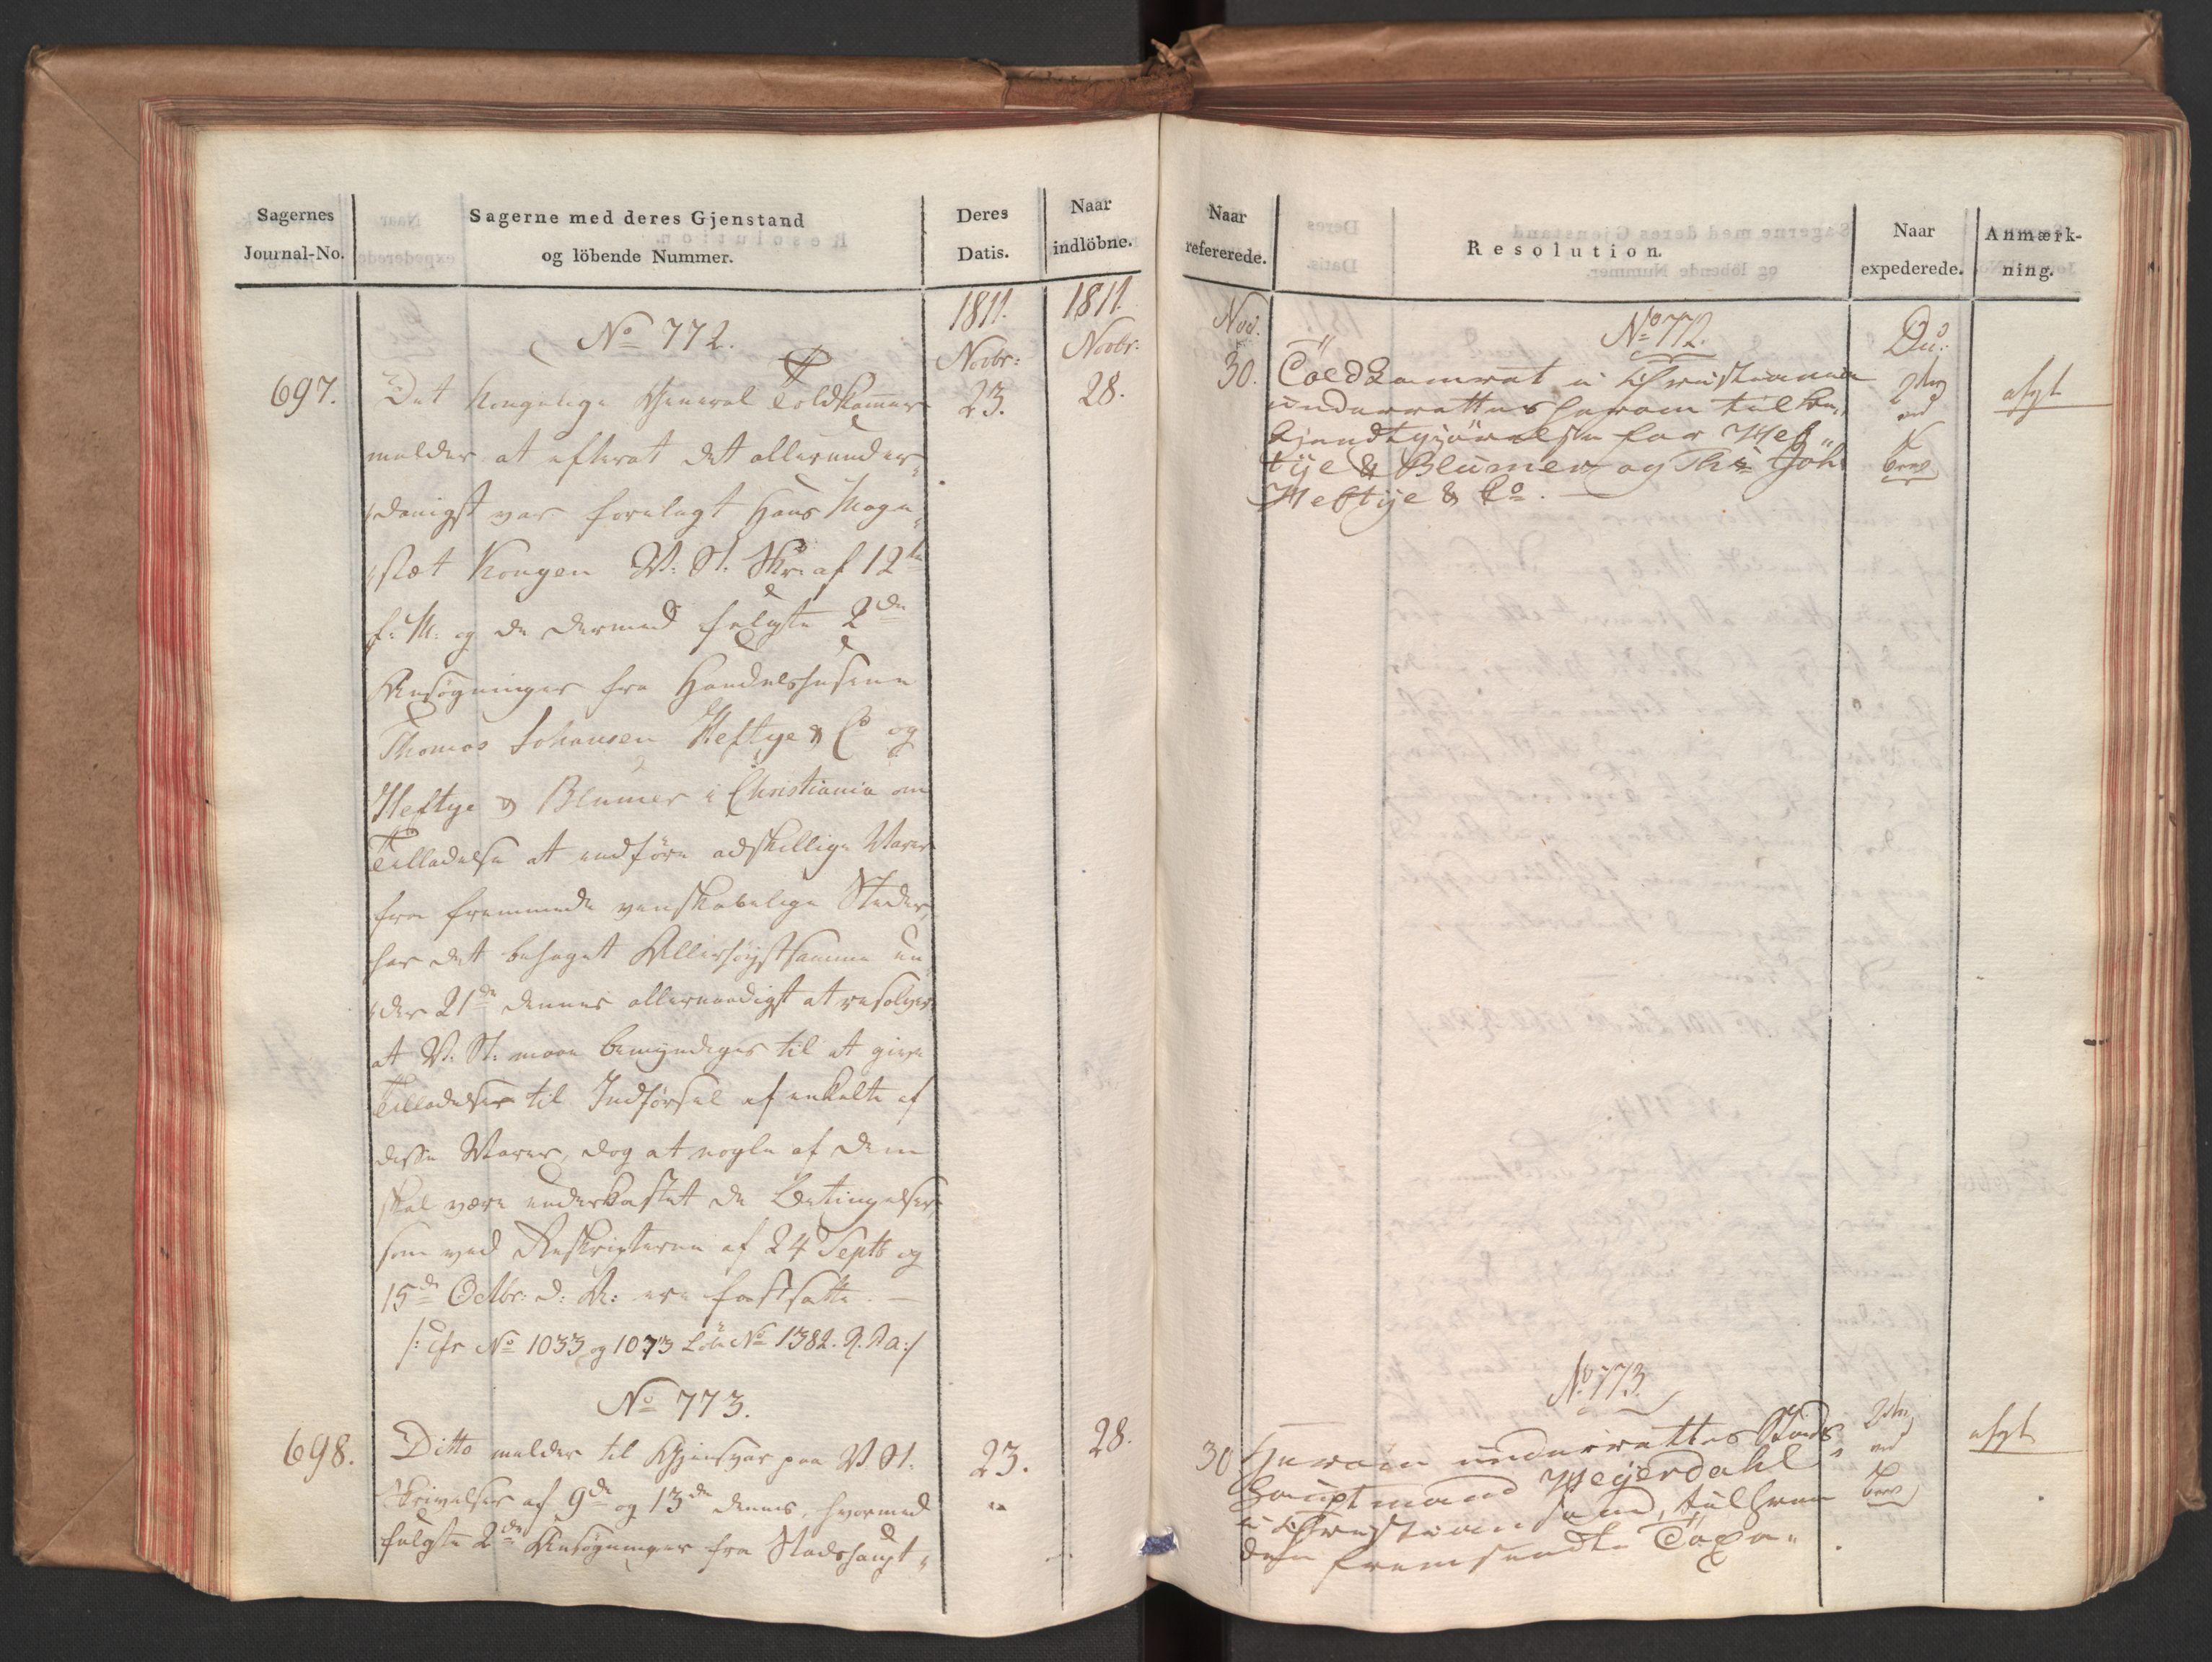 Sagernes
Journal-No.
Sagerne med deres Gjenstand
og löbende Nummer.
Deres
Datis.
Naar
indlöbne.
1811.
Novbr:
1811.
Novbr:
No 772.
697.
23.
28.
Det Kongelige General Toldkammer
melder at efterat det allerunder-
danigst var forelagt Hans Maje-
stæt Kongen V: St: Skr: af 12te
f: M: og de dermed fulgte 2de
Ansøgninger fra Handelshusene
Thomas Johansen Heftye & Co og
Heftye & Blumer i Christiania om
Tilladelse at indføre adskillige Varer
fra fremmede venskabelige Steder,
har det behaget Allerhøjstsamme un-
der 21de dennes allernaadigst at resolvere
at V: St: maae bemyndiges til at give
Tilladelser til Indførsel af enkelte af
disse Varer, dog at nogle af dem
skal være underkastet de Betingelser
som ved Reskripterne af 24 Septb og
15de Octbr: d: A: ere fastsatte. —
/: cfr No 1033 og 1073 Lön No 1382. R. Ra:/
No 773.
698.
23.
28.
Ditto melder til Gjensvar paa V St:
Skrivelser af 9de og 13de dennes, hvormed
fulgte 2de Ansøgninger fra Stadshaupt-
Naar
refererede.
Resolution.
Naar
expederede.
Anmærk-
ning.
Nov:
30.
No 772.
Toldkamret i Christiania
underrettes herom til be-
kjendtgjörelse for Hef-
tye & Blumer og Ths Joh:
Heftye & Co. —
Du:
ved
Brev
afgt
No 773.
30
Herom underrettes Stads-
hauptmand Heyerdahl
i Christiansand, til hvem
den fremsendte Toxa-
ved
Brev
afgt